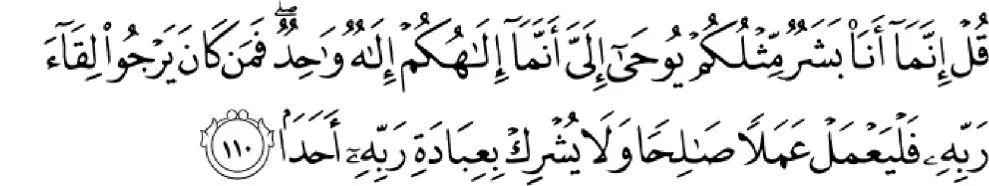 قُلۡ إِنَّمَآ أَنَا۠ بَشَرٞ مِّثۡلُكُمۡ يُوحَىٰٓ إِلَيَّ أَنَّمَآ إِلَٰهُكُمۡ إِلَٰهٞ وَٰحِدٞۖ فَمَن كَانَ يَرۡجُواْ لِقَآءَ
رَبِّهِۦ فَلۡيَعۡمَلۡ عَمَلٗا صَٰلِحٗا وَلَا يُشۡرِكۡ بِعِبَادَةِ رَبِّهِۦٓ أَحَدَۢا ١١٠